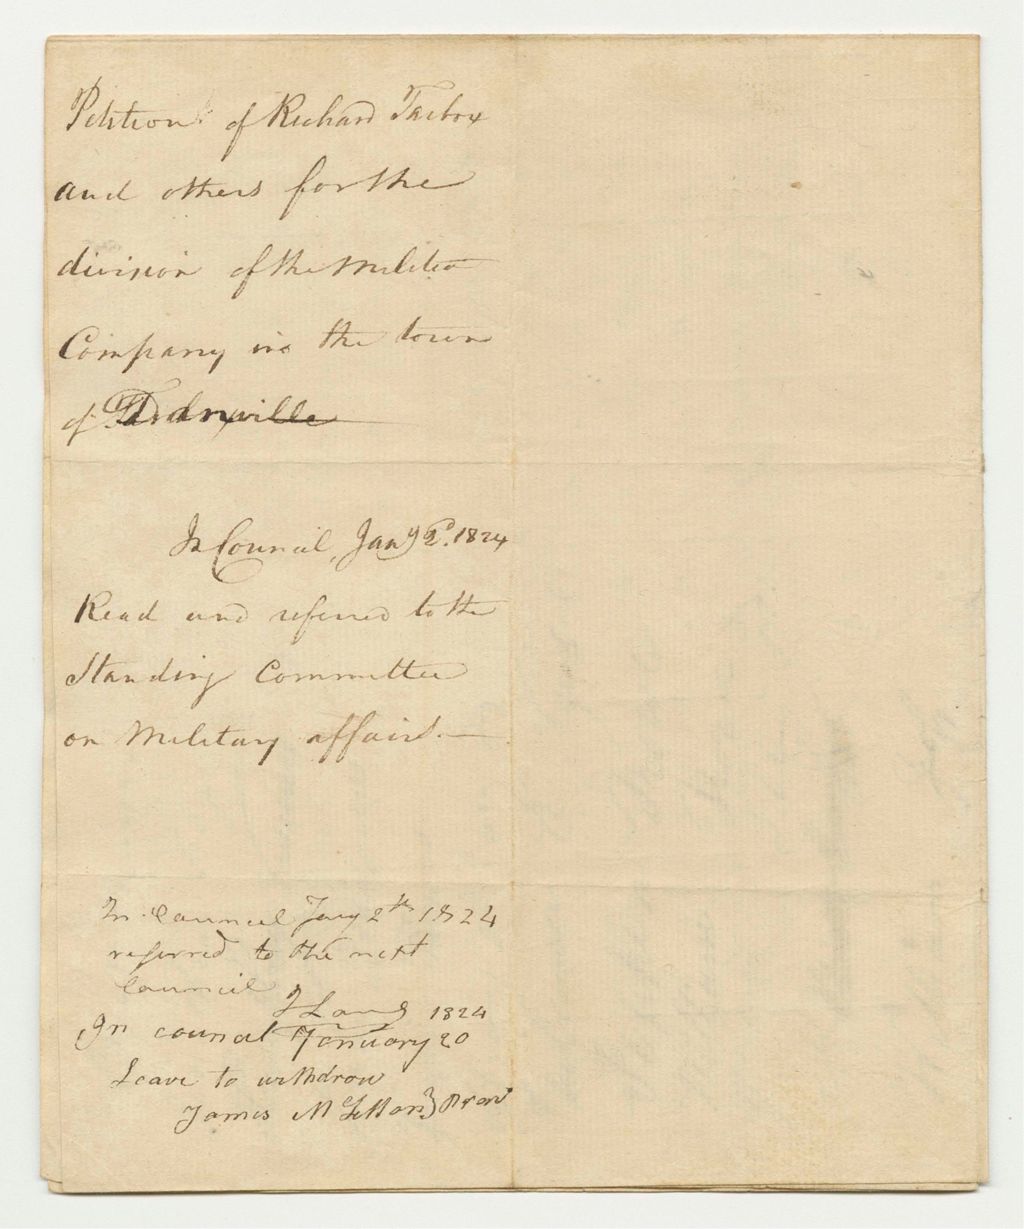 Petition of Richard Tarbox
and others for the
division of the Militia
Company in the town
of Danville
In Council, Jany 2d. 1824
Read and referred to the
Standing Committee
on Military affairs.—
In Council Jany 2th 1824
referred to the next
Council
In council January 20 1824
Leave to withdraw
James